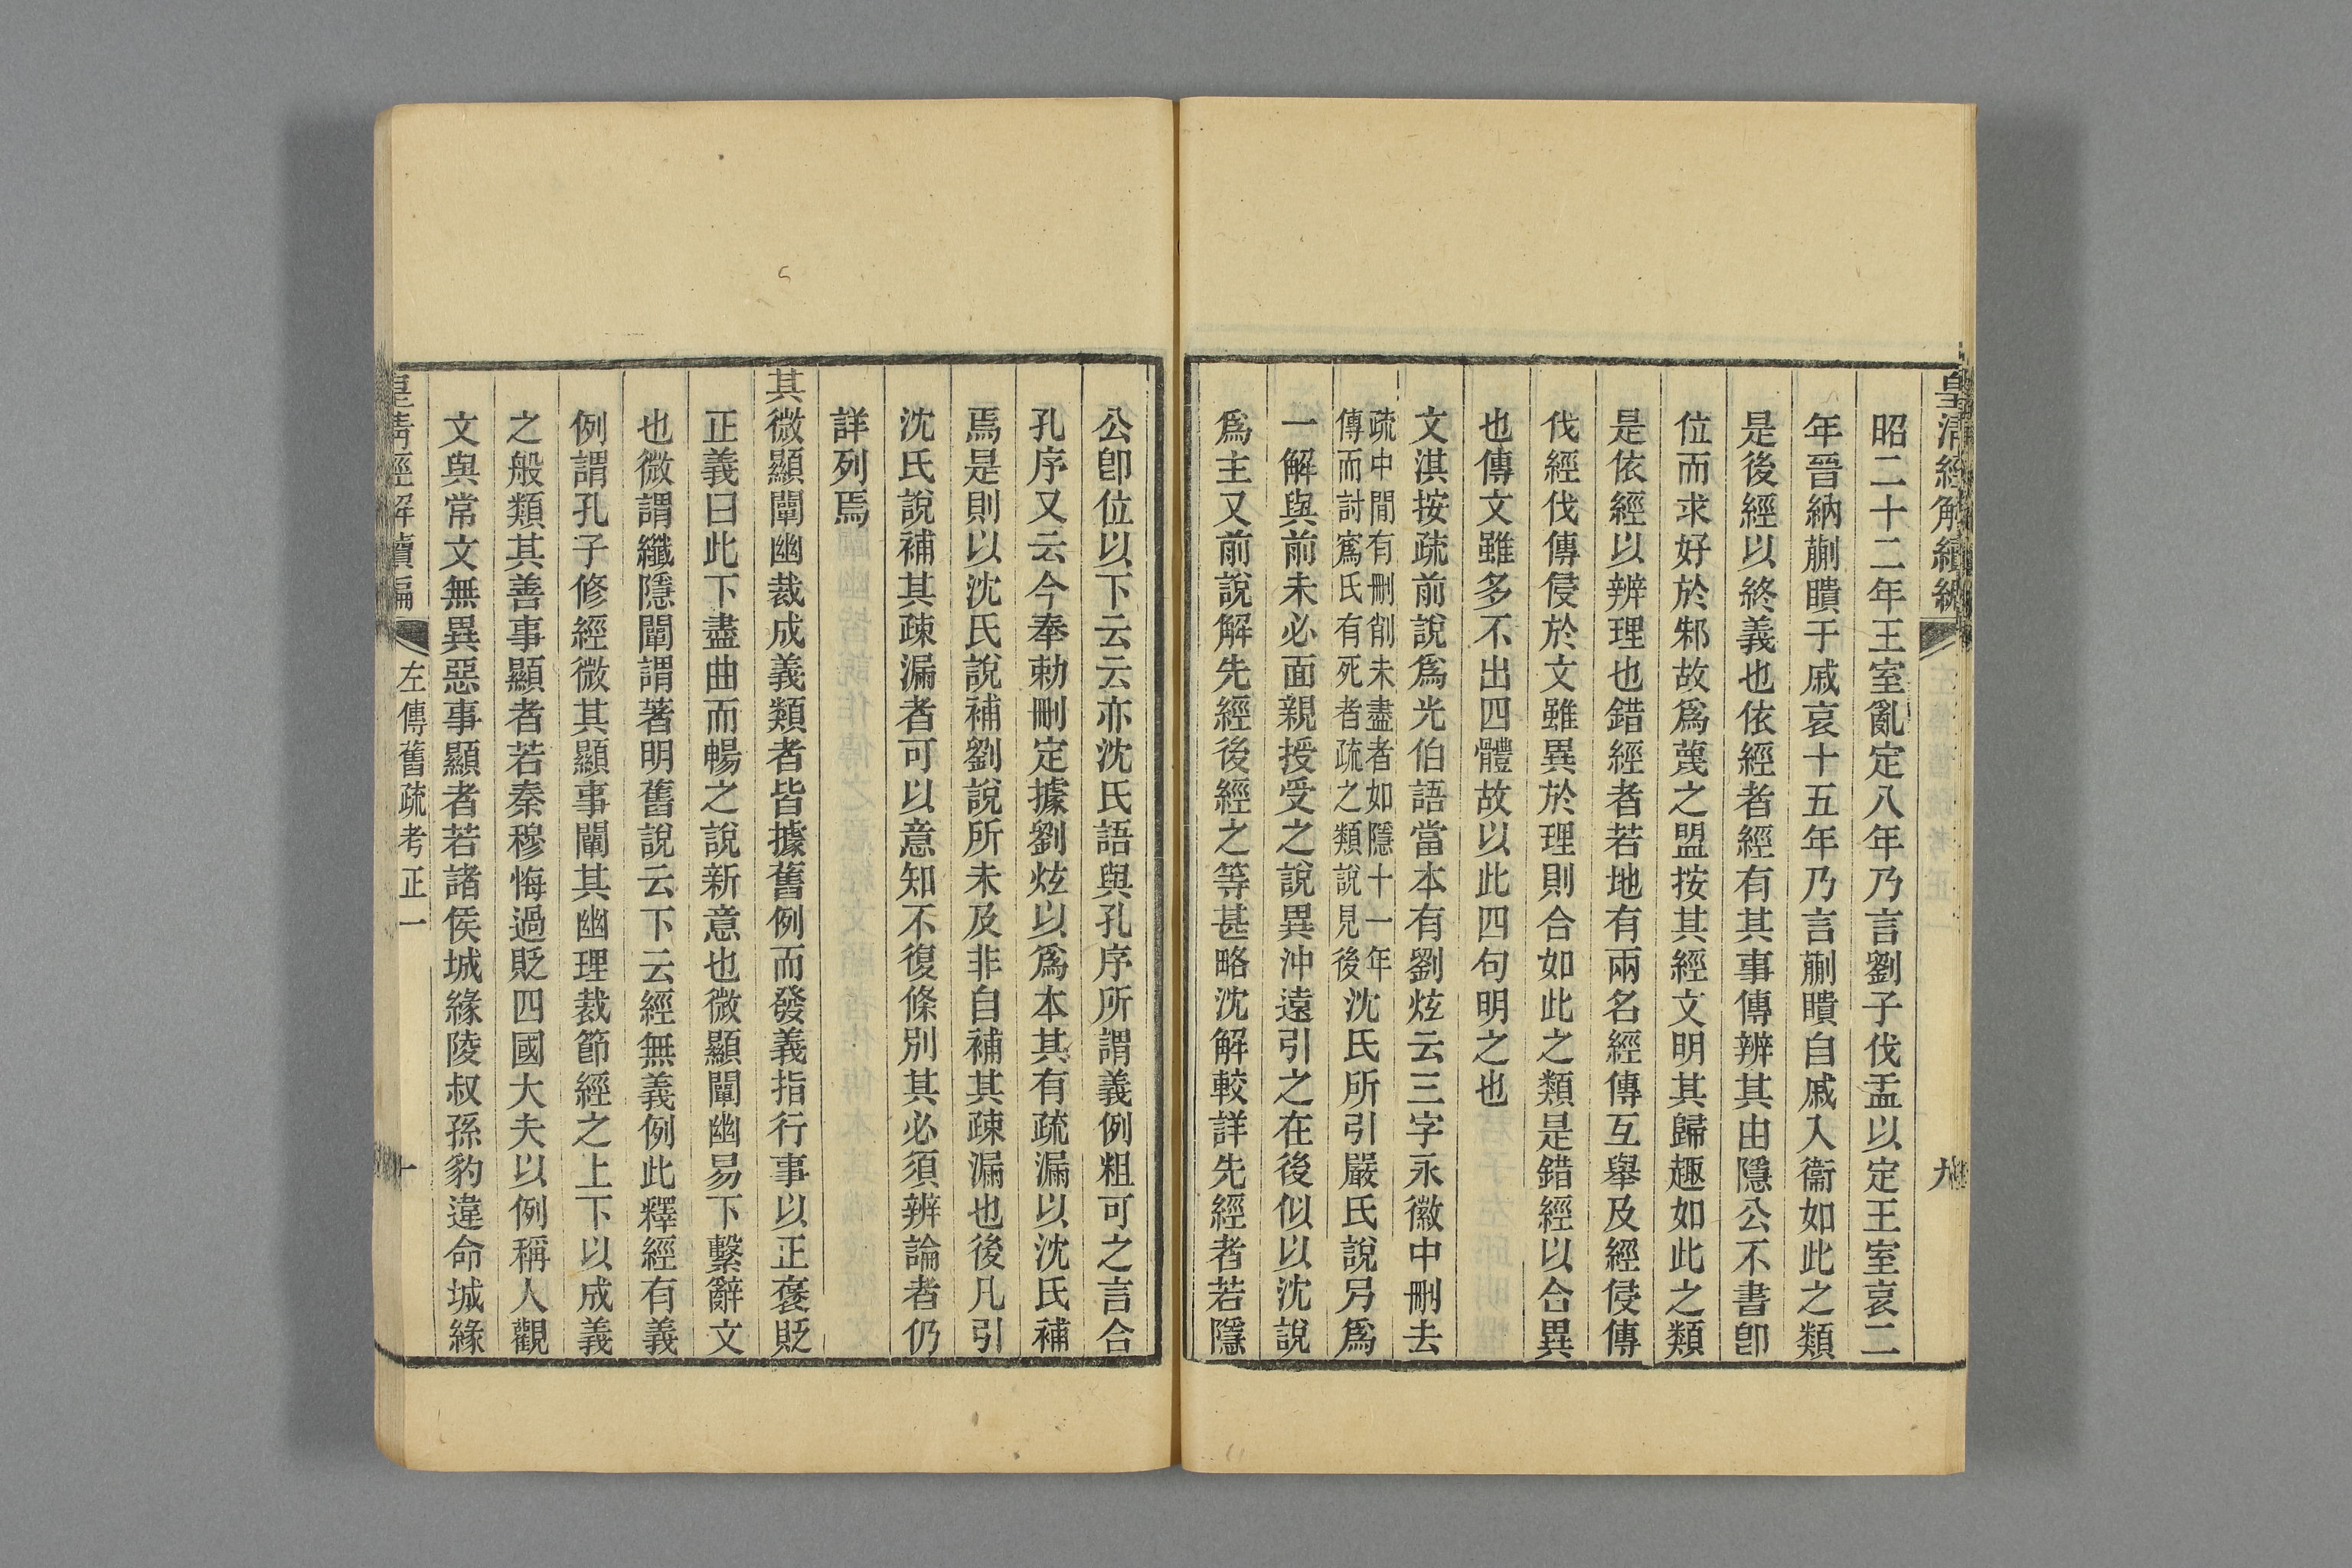 皇清經解續編
九
昭二十二年王室亂定八年乃言劉子伐盂以定王室哀二
年晉納蒯聵于戚哀十五年乃言蒯聵自戚入衞如此之類
是後經以終義也依經者經有其事傳辨其由隱公不書卽
位而求好於邾故爲蔑之盟按其經文明其歸趣如此之類
是依經以辨理也錯經者若地有兩名經傳互舉及經侵傳
伐經伐傳侵於文雖異於理則合如此之類是錯經以合異
也傳文雖多不出四體故以此四句明之也
文淇按疏前說爲光伯語當本有劉炫云三字永徽中刪去
疏中閒有刪削未盡者如隱十一年
傳而討寪氏有死者疏之類說見後
沈氏所引嚴氏說另爲
一解與前未必面親授受之說異沖遠引之在後似以沈說
爲主又前說解先經後經之等甚略沈解較詳先經者若隱
公卽位以下云云亦沈氏語與孔序所謂義例粗可之言合
孔序又云今奉勅刪定據劉炫以爲本其有疏漏以沈氏補
焉是則以沈氏說補劉說所未及非自補其疎漏也後凡引
沈氏說補其疎漏者可以意知不復條別其必須辨論者仍
詳列焉
其微顯闡幽裁成義類者皆據舊例而發義指行事以正褒貶
正義曰此下盡曲而暢之說新意也微顯闡幽易下繫辭文
也微謂纖隱闡謂著明舊說云下云經無義例此釋經有義
例謂孔子修經微其顯事闡其幽理裁節經之上下以成義
之般類其善事顯者若秦穆悔過貶四國大夫以例稱人觀
文與常文無異惡事顯者若諸侯城緣陵叔孫豹違命城緣
皇清經解續編
左傳舊疏考正一
十